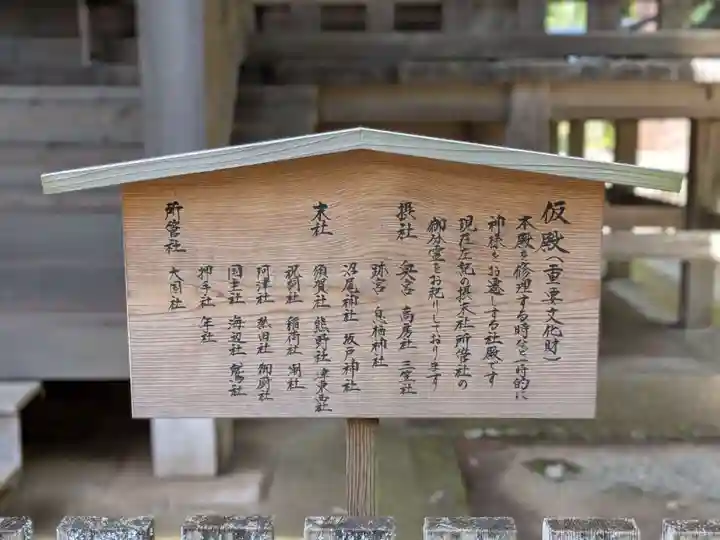 仮殿(重要文化財)
本殿を修理する時など一時的に
神様をお遷しする社殿です
現在左記の摂末社所管社の
御分霊をお祀りしております
摂社 奥宮 高房社 三笠社
跡宮 息栖神社
沼尾神社 坂戸神社
末社 須賀社 熊野社 津東西社
祝詞社 稲荷社 潮社
阿津社 熱田社 御厨社
国主社 海辺社 鷲社
押手社 年社
所管社 大国社